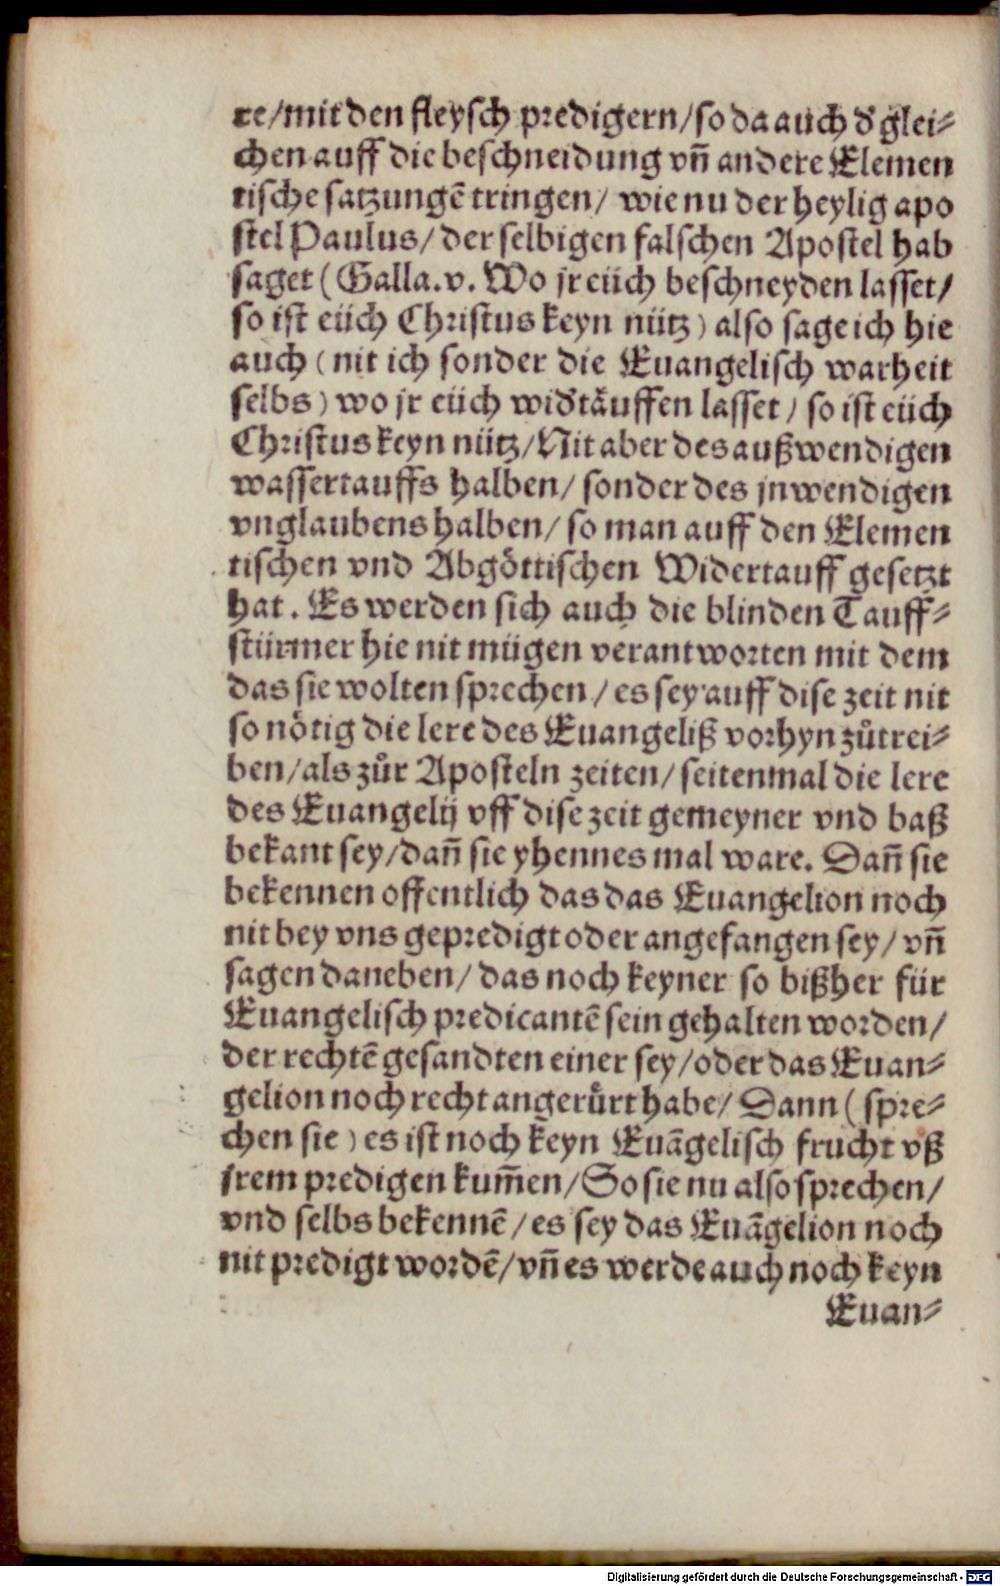 re/mit den fleysch predigern/so da auch d'glei⸗
chen auff die beschneidung vñ andere Elemen
tische satzungē tringen/ wie nu der heylig apo
stel Paulus/ der selbigen falschen Apostel hab
saget (Galla.v. Wo jr eüch beschneyden lasset/
so ist eüch Christus keyn nütz) also sage ich hie
auch (nit ich sonder die Euangelisch warheit
selbs) wo jr eüch wid'tåuffen lasset/ so ist eüch
Christus keyn nütz/Nit aber des außwendigen
wassertauffs halben/ sonder des jnwendigen
vnglaubens halben/ so man auff den Elemen
tischen vnd Abgöttischen Widertauff gesetzt
hat. Es werden sich auch die blinden Tauff⸗
stürmer hie nit mügen verantworten mit dem
das sie wolten sprechen/ es sey auff dise zeit nit
so nötig die lere des Euangeliß vorhyn zůtrei⸗
ben/als zůr Aposteln zeiten/ seitenmal die lere
des Euangelij vff dise zeit gemeyner vnd baß
bekant sey/dañ sie yhennes mal ware. Dañ sie
bekennen offentlich das das Euangelion noch
nit bey vns gepredigt oder angefangen sey/ vñ
sagen daneben/ das noch keyner so bißher für
Euangelisch predicantē sein gehalten worden/
der rechtē gesandten einer sey/oder das Euan⸗
gelion noch recht angerůrt habe/ Dann (spre⸗
chen sie) es ist noch keyn Euāgelisch frucht vß
jrem predigen kum̃en/So sie nu also sprechen/
vnd selbs bekennē/es sey das Euāgelion noch
nit predigt wordē/vñ es werde auch noch keyn
Euan⸗
Digitalisierung gefördert durch die Deutsche Forschungsgemeinschaft - DFG